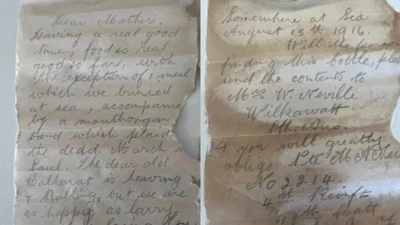 Dear Mother,
Having a real good
time, food is real
good so far, with
the exception of 1 meal
which we buried
at sea, accompanied
by a mouthorgan
band which plaid
the dead March in
Saul. The dear old
Ballarat is heaving
& Rolling, but we are
as happy as Larry
Somewhere at Sea
August 15th 1916.
Will the person
finding this bottle, please
send the contents to
Mrs W. Neville
Wilkawatt
Sth Aus.
& you will greatly
oblige Pte M A Neville
No 2214
4th Reinf